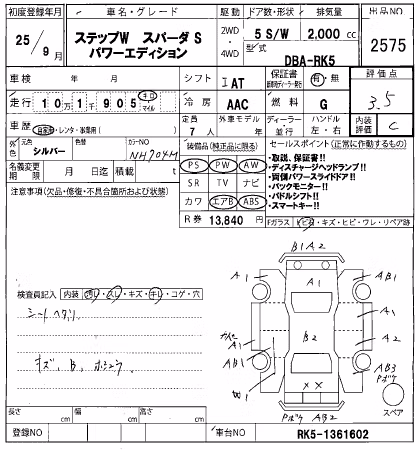 初度登録年月 車名・グレード 駆動 ドア数・形状 排気量 出品NO
25/9月 ステップW スパーダ S パワーエディション 2WD・4WD 5 S/W 2,000 cc 2575
型式 DBA-RK5
車検 年 月 シフト I AT 保証書 有・無 評価点 3.5
走行 10万1千905 キロ マイル 冷房 AAC 燃料 G 内装評価 C
車歴 自家用・レンタ・事業用( ) 定員 7人 外車モデル 年 ディーラー・並行 ハンドル 左・右
外色 元色 シルバー 色替 カラーNO NH704M 装備品(純正品に限る) セールスポイント(正常に作動するもの)
名義変更期限 月 日迄 積載 t PS PW AW
・取説、保証書!!
・ディスチャージヘッドランプ!!
・両側パワースライドドア!!
・バックモニター!!
・パドルシフト!!
・スマートキー!!
注意事項(欠品・修復・不具合箇所および状態) SR TV ナビ
カワ エアB ABS
R券 13,840円 Fガラス ヒビ・キズ・ヒビ・ワレ・リペア跡
検査員記入 内装 汚レ・スレ・キズ・キレ・コゲ・穴
シートヘタリ
キズ、B、
B1A2
A1 A1 AB1
A1 B2 A1
AB1 A2
W1 AB3
××
AB2
スペア
長さ cm 幅 cm 高さ cm
登録NO 車台NO RK5-1361602